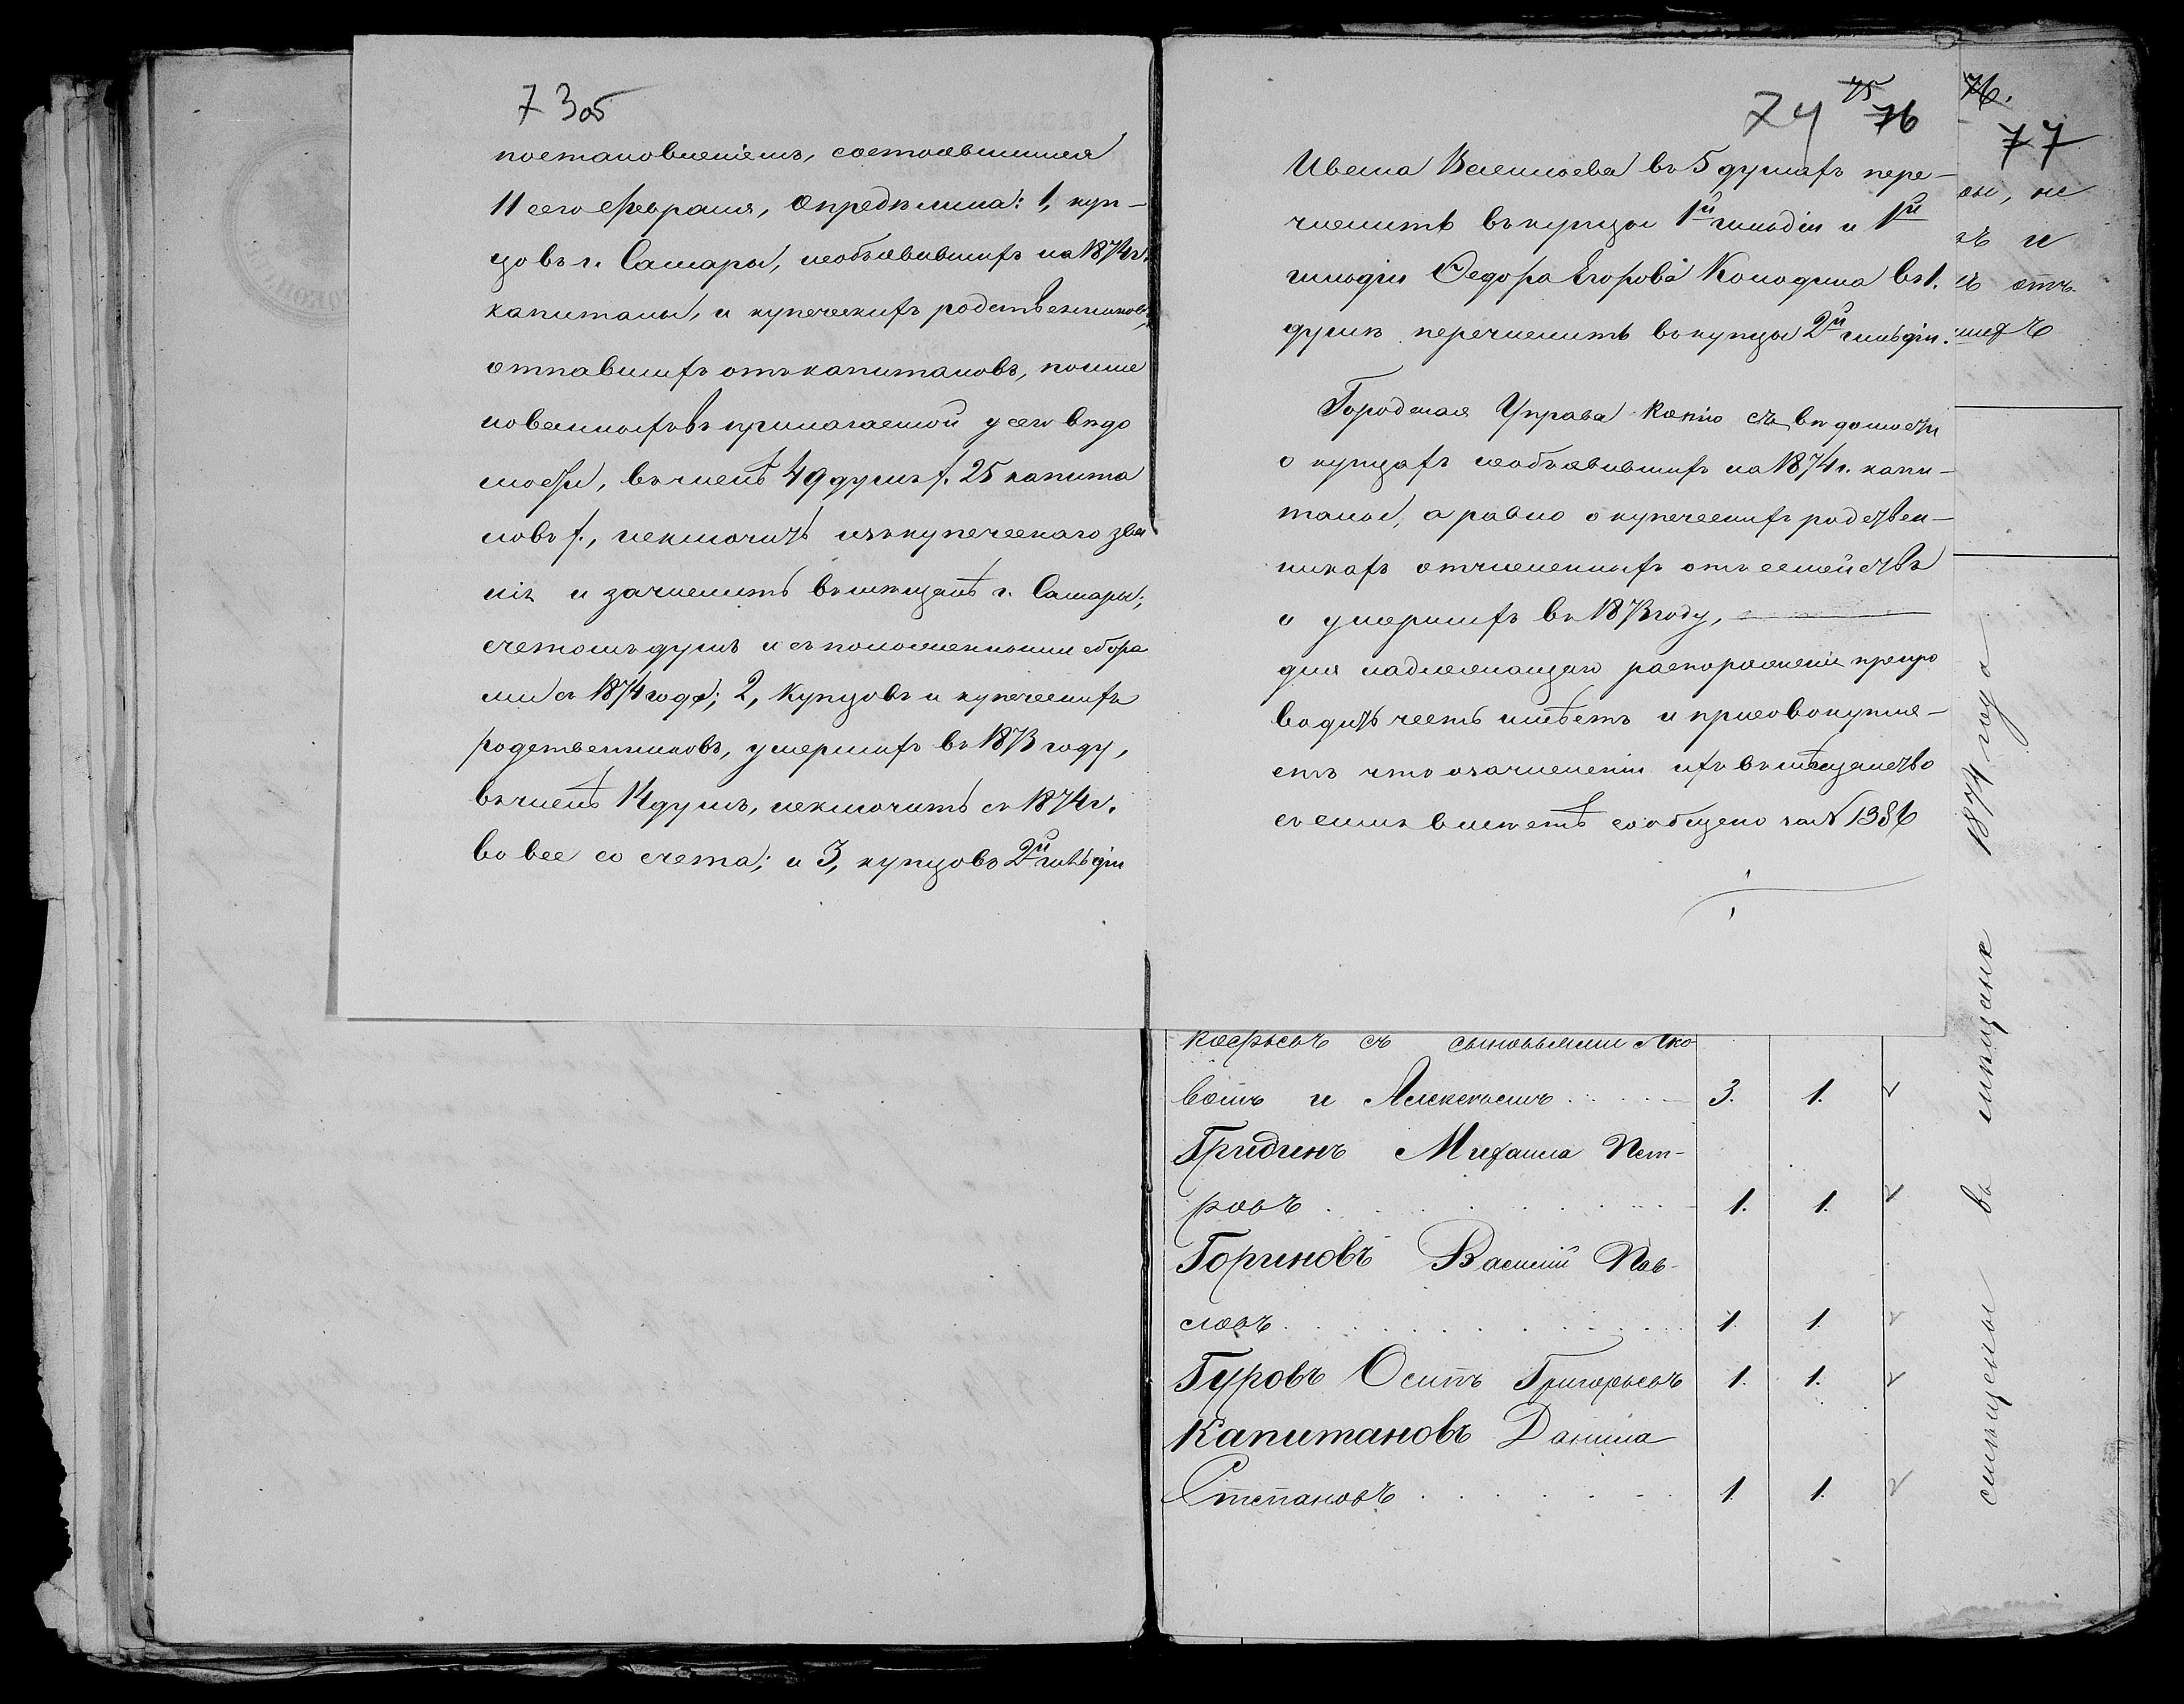 73об
постановленіемъ, состоявшимся
11 сего Февраля, опредѣлила: 1, куп-
цовъ г. Самары, необъявившихъ на 1874 г.
капиталы, и купеческихъ родственниковъ,
отпавшихъ отъ капиталовъ, поиме
нованныхъ въ прилагаемой у сего вѣдо
мости, въ числѣ 49 душъ /. 25 капита
ловъ /., исключить изъ купеческаго зва
нія и зачислить въ мѣщане г. Самары,
счетомъ душъ и съ положенными сбора
ми съ 1874 года; 2, Купцовъ и купеческихъ
родственниковъ, умершихъ въ 1873 году,
въ числѣ 14 душъ, исключить съ 1874 г.
во все со счета; и 3, купцовъ 2й гильдіи
74 75 76
Ивана Васильева въ 5 душахъ пере-
числить въ купцы 1й гильдіи и 1й
гильдіи Федора Егорова Колодина въ 1.
душѣ перечислить въ купцы 2й гильдіи.
Городская Управа копію съ вѣдомости
о купцахъ необъявившихъ на 1874 г. капи-
талы, а равно о купеческихъ родствен-
никахъ отчисленныхъ отъ семействъ
и умершихъ въ 1873 году,
для надлежащаго распоряженія препро
водить честь имѣетъ и присовокупля-
етъ что о зачисленіи ихъ въ мѣщанство
съ симъ вмѣстѣ сообщено за № 1386
76.
77
ы, не
ъ и
ъ отъ
сыновьями Яко
вомъ и Алексѣемъ 3. 1.
Гридинъ Михаила Пет-
ровъ 1. 1.
Гориновъ Василій Пав-
ловъ 1 1
Гуровъ Осипъ Григорьевъ 1. 1.
Капитановъ Данила
Степановъ 1 1.
въ мѣщане 1874 года